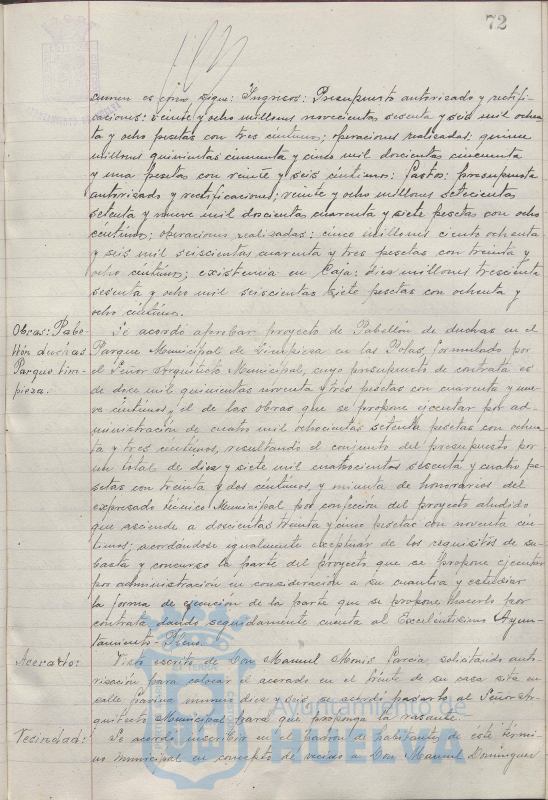 72
sumen es como sigue: Ingresos: Presupuesto autorizado y rectifi-
caciones: veinte y ocho millones novecientas sesenta y seis mil ochen-
ta y ocho pesetas con tres céntimos; operaciones realizadas: quince
millones quinientas cincuenta y cinco mil doscientas cincuenta
y una pesetas con veinte y seis céntimos: Gastos: presupuesto
autorizado y rectificaciones; veinte y ocho millones setecientas
setenta y nueve mil doscientas cuarenta y siete pesetas con ocho
céntimos; operaciones realizadas: cinco millones ciento ochenta
y seis mil seiscientas cuarenta y tres pesetas con treinta y
ocho céntimos; existencia en Caja: diez millones trescientas
sesenta y ocho mil seiscientas siete pesetas con ochenta y
ocho céntimos.
Obras: Pabe-
llón duchas
Parque Lim-
pieza.
Se acordó aprobar proyecto de Pabellón de duchas en el
Parque Municipal de Limpieza en las Polas, formulado por
el Señor Arquitecto Municipal, cuyo presupuesto de contrata es
de doce mil quinientas noventa y tres pesetas con cuarenta y nue-
ve céntimos, y el de las obras que se propone ejecutar por ad-
ministración de cuatro mil ochocientas setenta pesetas con ochen-
ta y tres céntimos, resultando el conjunto del presupuesto por
un total de diez y siete mil cuatrocientas sesenta y cuatro pe-
setas con treinta y dos céntimos, y minuta de honorarios del
expresado técnico Municipal por confección del proyecto aludido
que asciende a doscientas treinta y cinco pesetas con noventa cén-
timos; acordándose igualmente exceptuar de los requisitos de su-
basta y concurso la parte del proyecto que se propone ejecutar
por administración en consideración a su cuantía y estudiar
la forma de ejecución de la parte que se propone hacerlo por
contrata dando seguidamente cuenta al Excelentísimo Ayun-
tamiento-Pleno.
Acerado:
Visto escrito de Don Manuel Monis García, solicitando auto-
rización para colocar el acerado en el frente de su casa sita en
calle Gravina número diez y seis, se acordó pasarlo al Señor Ar-
quitecto Municipal para que proponga la rasante.
Vecindad:
Se acordó inscribir en el padrón de habitantes de este térmi-
no municipal en concepto de vecino a Don Manuel Domínguez
Ayuntamiento de
HUELVA